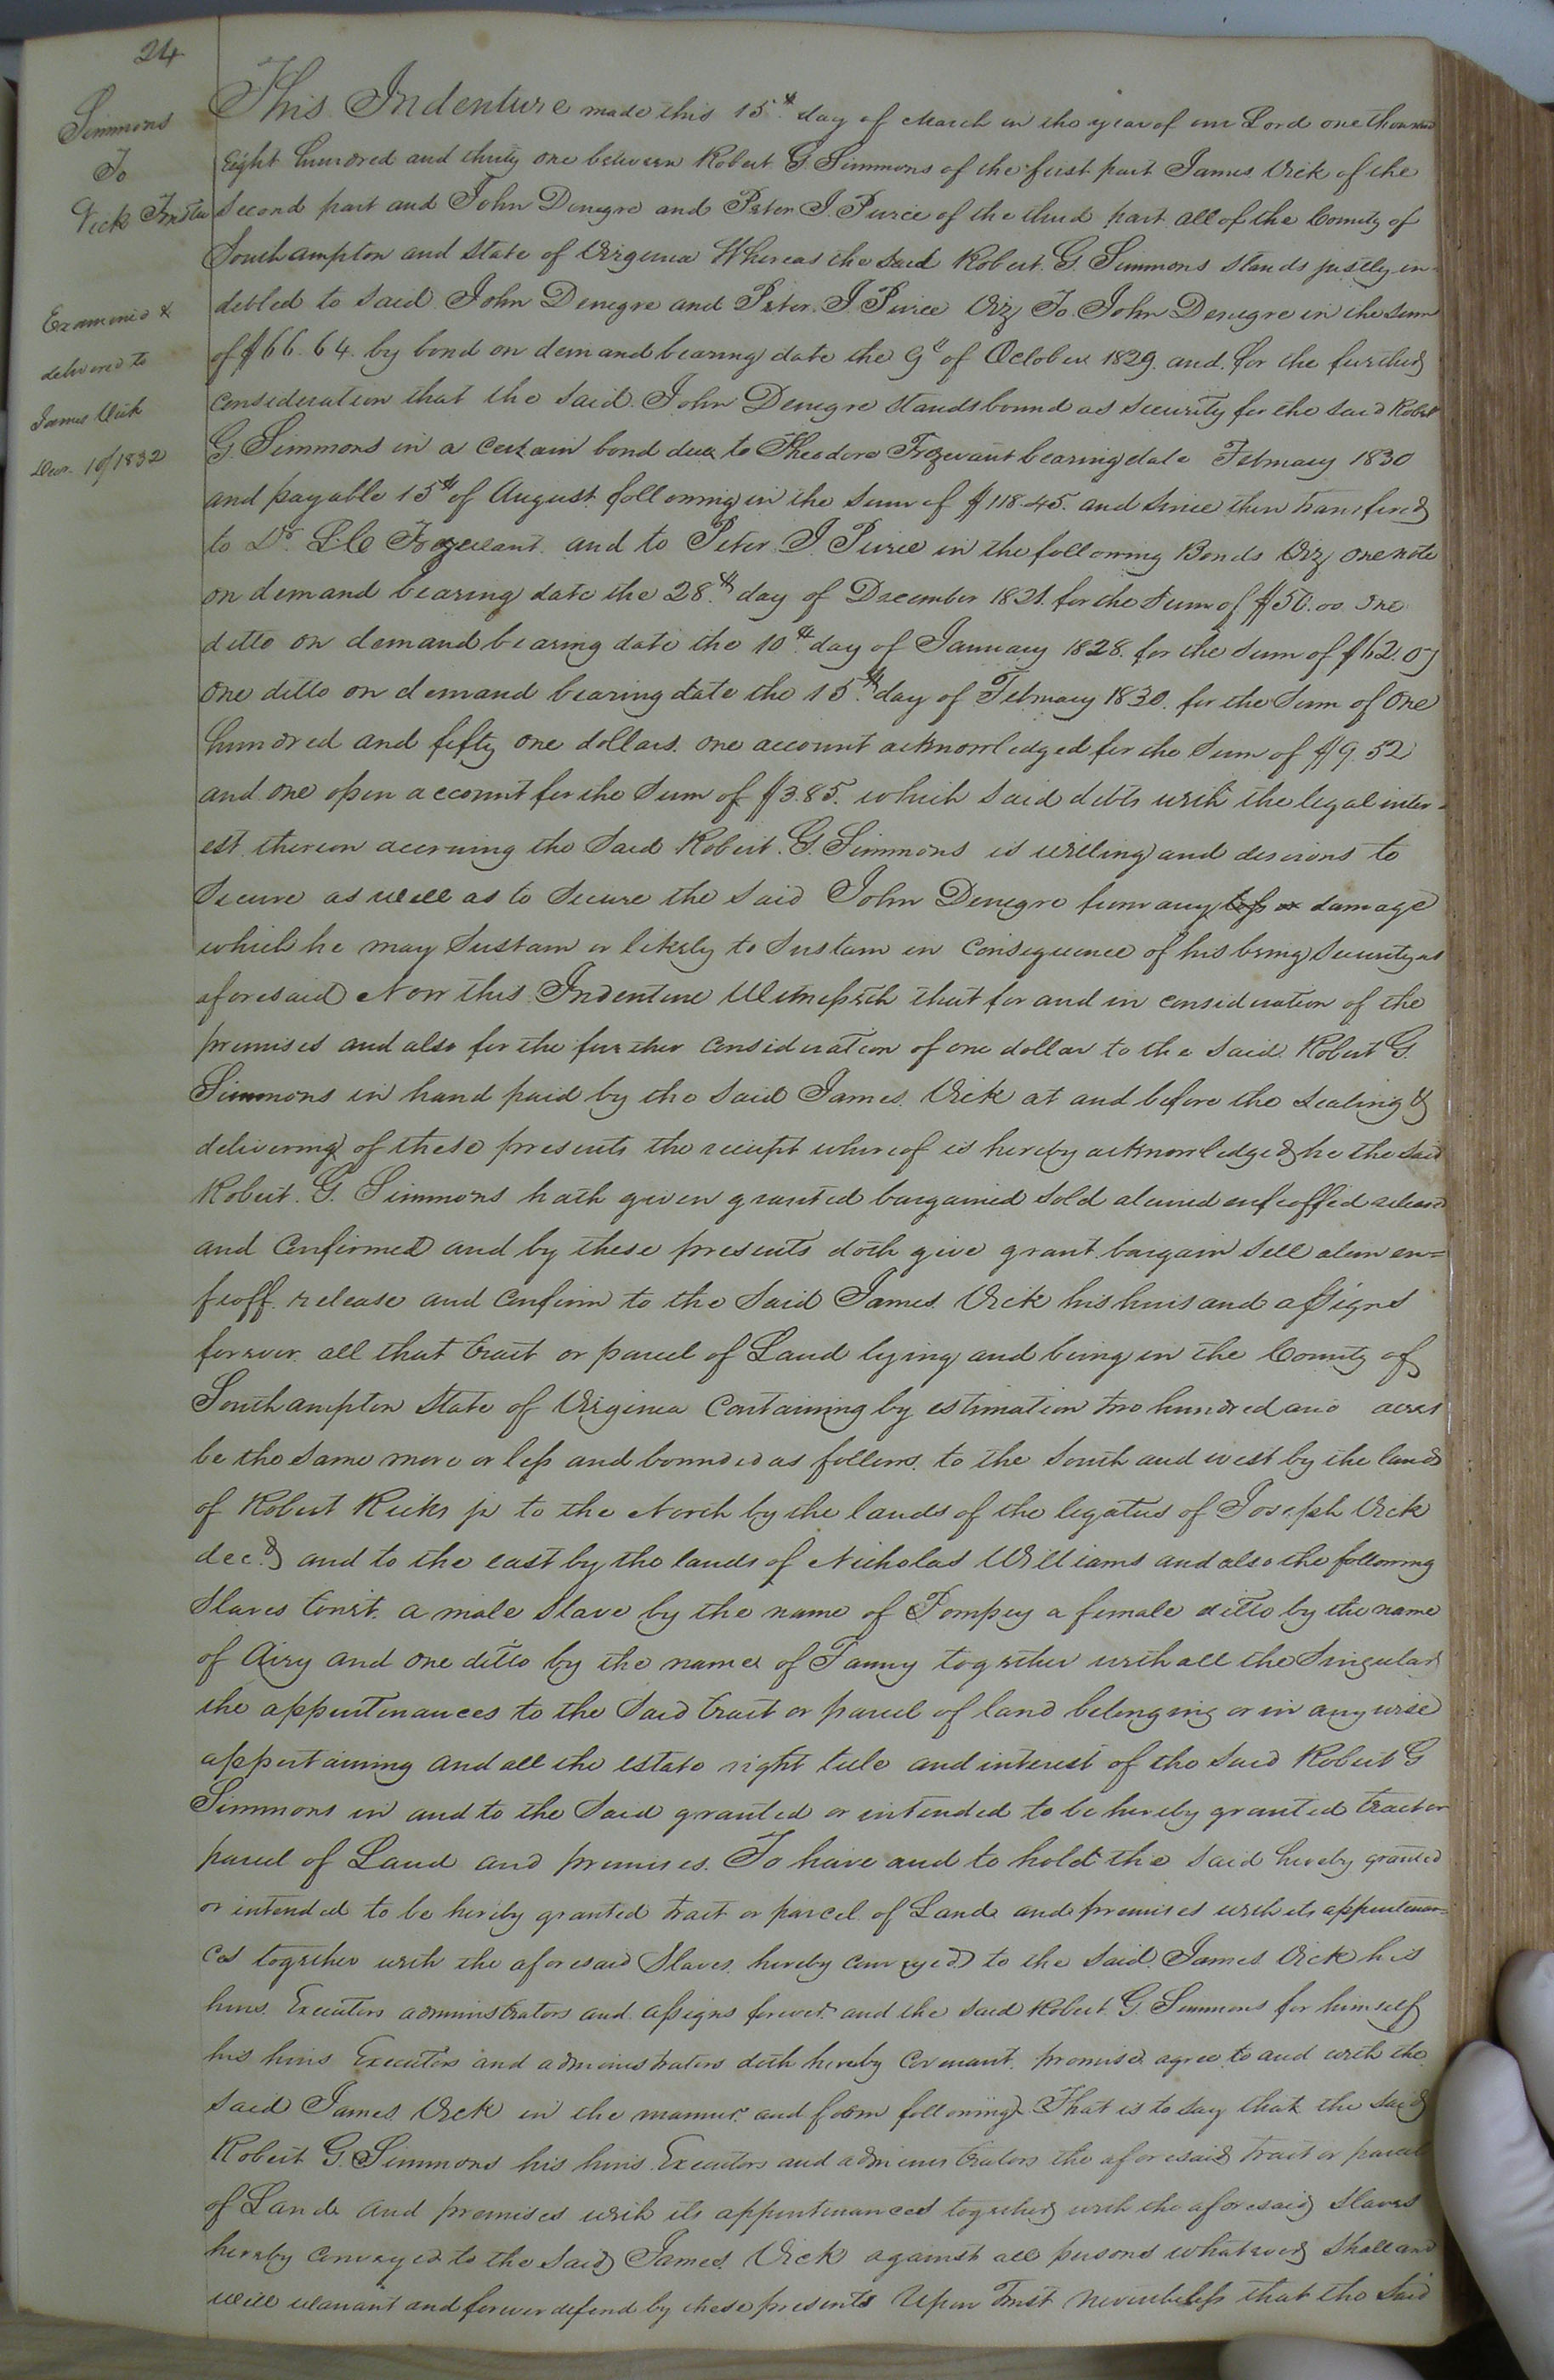 24
Simmons
To
Vick Trustee
Examined &
delivered to
James Vick
Decr. 1st 1832
This Indenture made this 15th day of March in the year of our Lord one thousand
Eight hundred and thirty one between Robert G. Simmons of the first part James Vick of the
Second part and John Denegre and Peter J. Pierce of the third part all of the County of
Southampton and State of Virginia Whereas the said Robert. G. Simmons stands justly in-
debted to said John Denegre and Peter. J. Pierce Viz To John Denegre in the sum
of $66.64. by bond on demand bearing date the 9th of October 1829. and. for the further
consideration that the said. John Denegre stands bound as security for the said Robert
G. Simmons in a certain bond due to Theodore Trezevant bearing date February 1830
and payable 15th of August following in the sum of $118.45. and since then transfered
to Dr. Trezevant. and to Peter. J. Pierce in the following Bonds Viz one note
on demand bearing date the 28th day of December 1821. for the sum of $50.00. one
ditto on demand bearing date the 10th day of January 1828. for the sum of $62.07
one ditto on demand bearing date the 15th day of February 1830. for the sum of one
hundred and fifty one dollars. one account acknowledged for the sum of $9.52
and one open account for the sum of $3.85. which said debts with the legal inter-
est thereon accruing the said Robert. G. Simmons is willing and desirous to
secure as well as to secure the said John Denegre from any loss or damage
which he may sustain or likely to sustain in consequence of his being security as
aforesaid Now this Indenture Witnesseth that for and in consideration of the
premises and also for the further consideration of one dollar to the said. Robert G.
Simmons in hand paid by the said James. Vick at and before the sealing &
delivering of these presents the receipt whereof is hereby acknowledged he the said
Robert. G. Simmons hath given granted bargained sold aliened enfeoffed released
and confirmed and by these presents doth give grant bargain sell alien en=
feoff. release and confirm to the said James. Vick his heirs and assigns
forever. all that tract or parcel of Land lying and being in the County of
Southampton State of Virginia containing by estimation two hundred and acres
be the same more or less and bounded as follows. to the South and west by the lands
of Robert Ricks jr to the North by the lands of the legatees of Joseph Vick
decd and to the east by the lands of Nicholas Williams and also the following
Slaves towit. a male slave by the name of Pompey a female ditto by the name
of Airy and one ditto by the name of Fanny together with all the Singular
the appurtenances to the said tract or parcel of land belonging or in any wise
appertaining and all the estate right title and interest of the said Robert G
Simmons in and to the said granted or intended to be hereby granted tract or
parcel of Land and premises. To have and to hold the said hereby granted
or intended to be hereby granted tract or parcel of Land and premises with its appurtenan=
ces together with the aforesaid Slaves. hereby conveyed to the said. James. Vick his
heirs. Executors administrators and assigns forever. and the said Robert. G. Simmons for himself
his heirs Executors and administrators doth hereby covenant. promise agree to and with the
said James. Vick in the manner and form following. That is to say that the said
Robert G. Simmons his heirs Executors and administrators the aforesaid tract or parcel
of Land and premises with its appurtenances together with the aforesaid Slaves
hereby conveyed to the said James. Vick against all persons whatever shall and
will warrant and forever defend by these presents Upon Trust nevertheless that the said